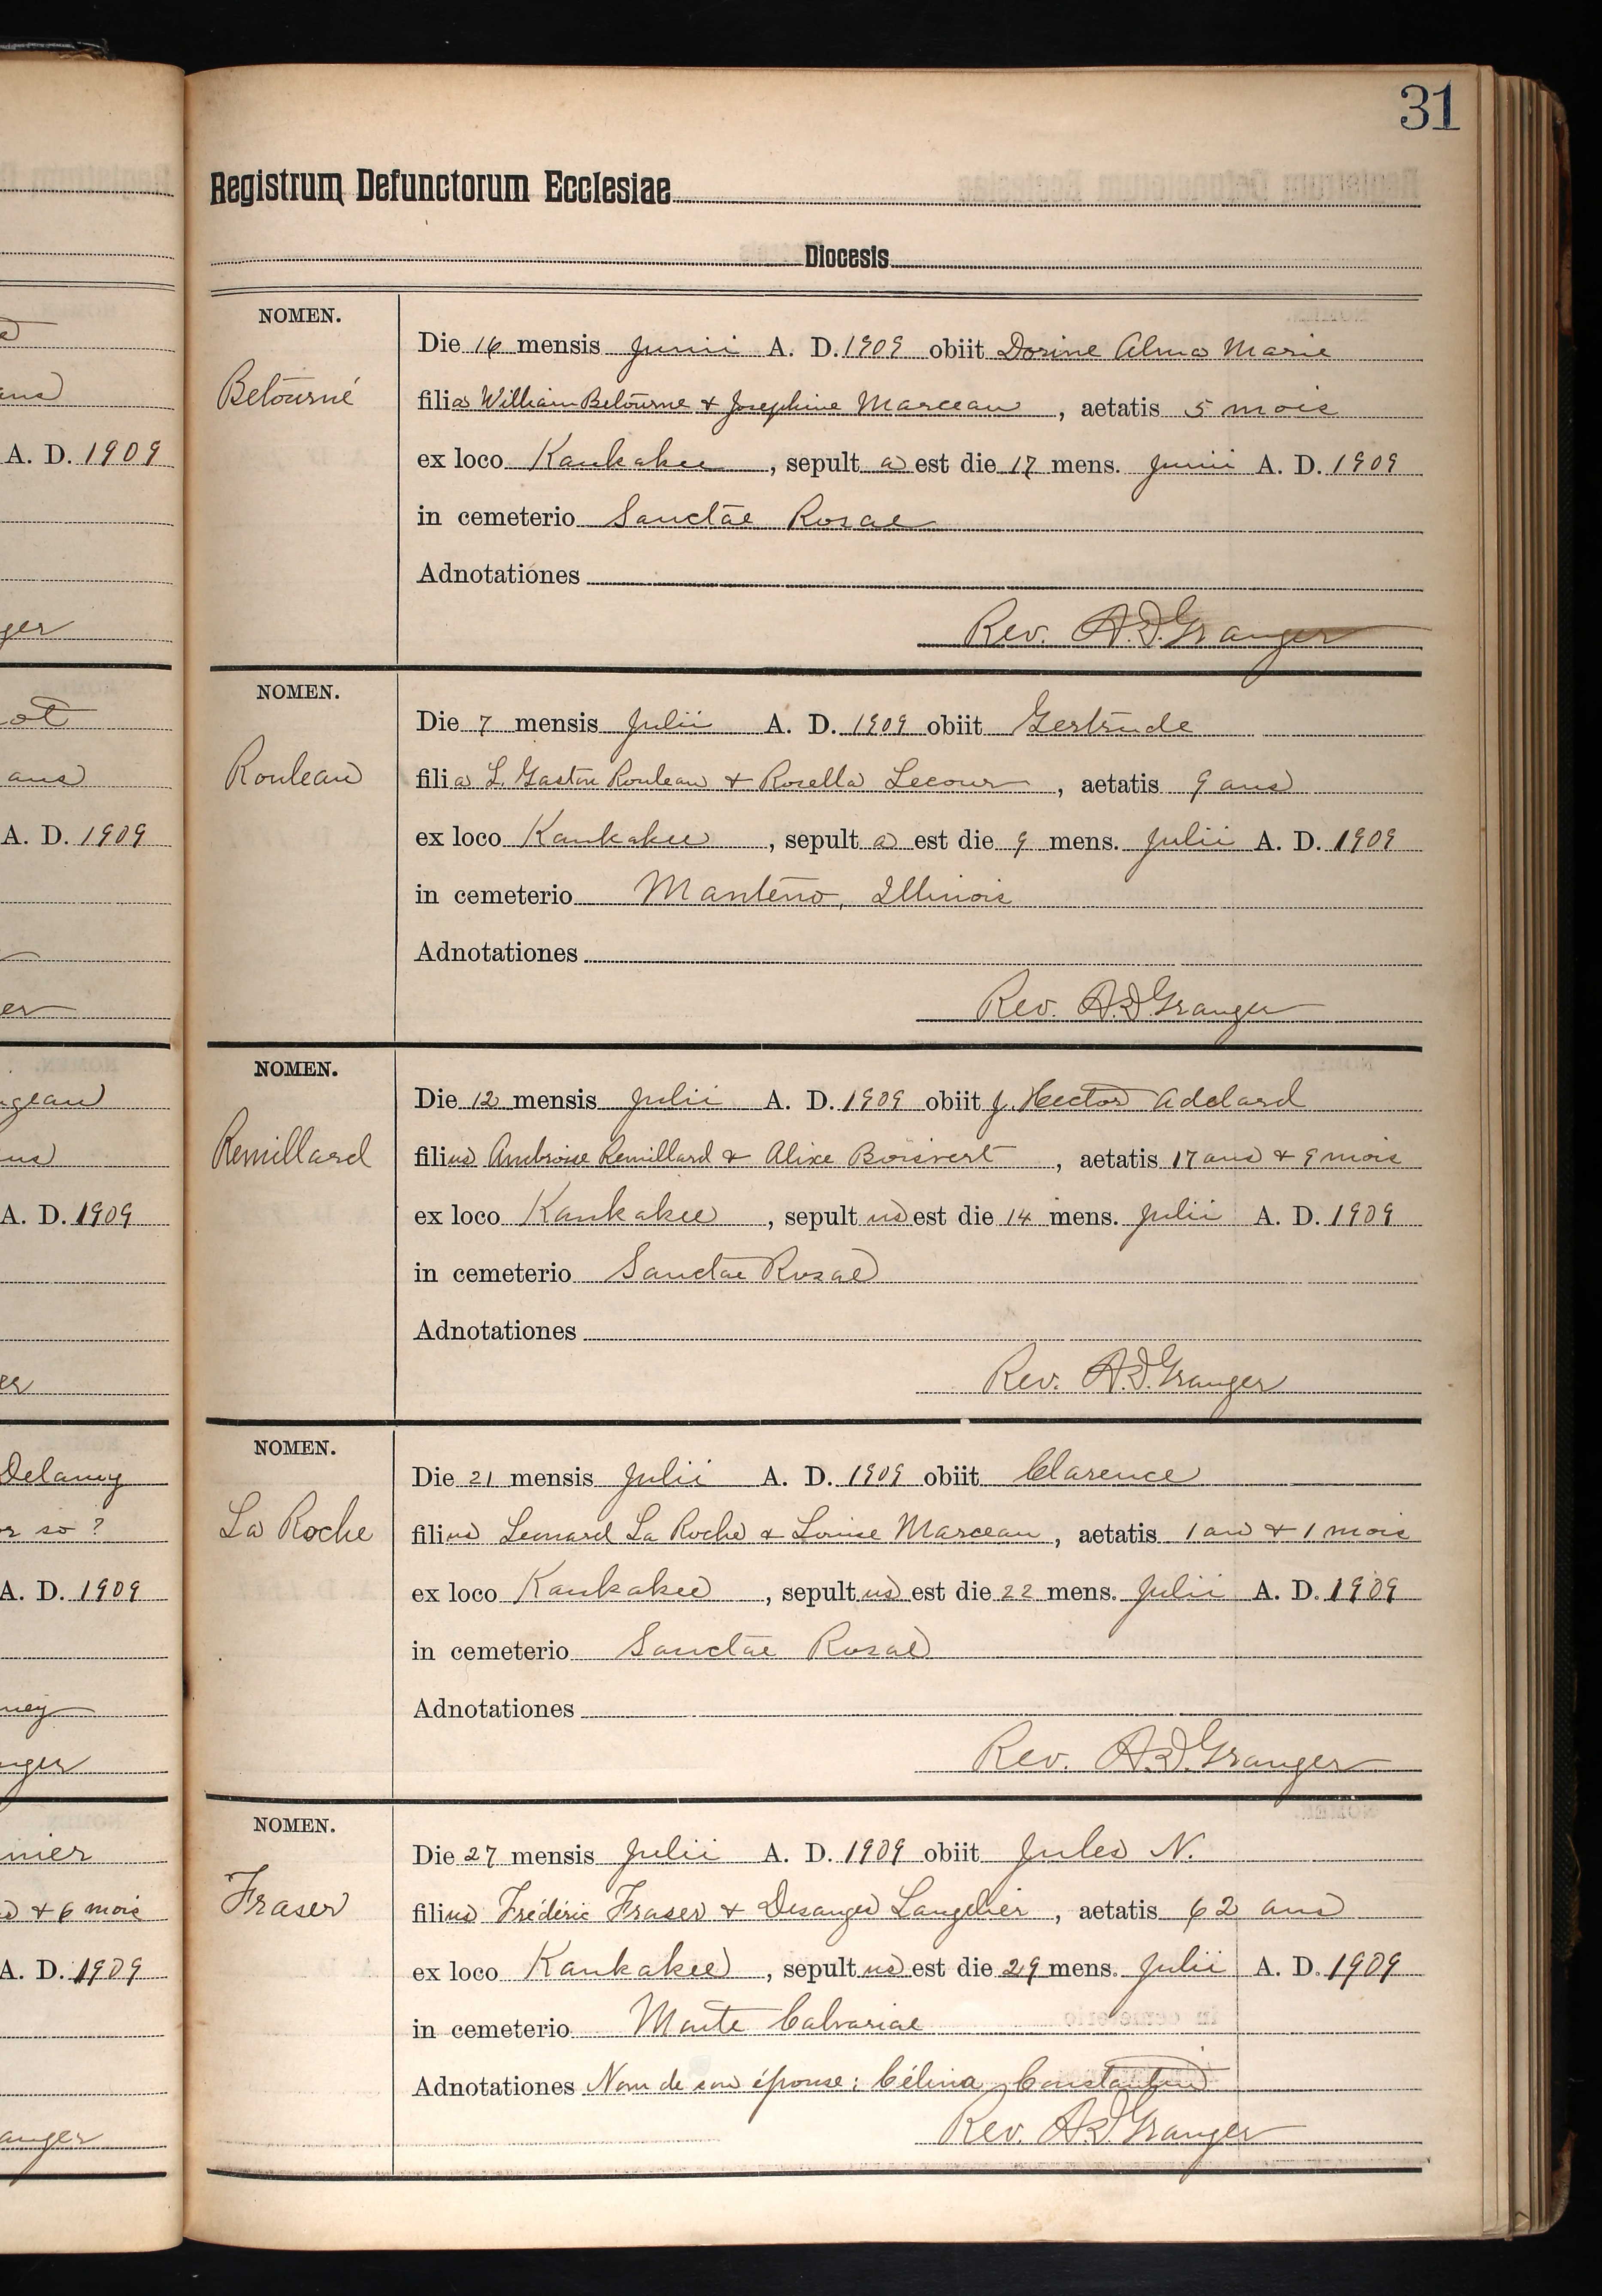 31
Registrum Defunctorum Ecclesiae
Diocesis
NOMEN.
Betourné
Die 16 mensis Junii A. D. 1909 obiit Dorine Alma Marie
filia William Betourne & Josephine Marceau, aetatis 5 mois
ex loco Kankakee, sepult a est die 17 mens. Junii A. D. 1909
in cemeterio Sanctae Rosae
Adnotationes
Rev. A.D. Granger
NOMEN.
Rouleau
Die 7 mensis Julii A. D. 1909 obiit Gertrude
filia L. Gaston Rouleau & Rosella Lecour, aetatis 9 ans
ex loco Kankakee, sepult a est die 9 mens. Julii A. D. 1909
in cemeterio Manteno, Illinois
Adnotationes
Rev. A.D. Granger
NOMEN.
Remillard
Die 12 mensis Julii A. D. 1909 obiit J. Hector Adelard
filius Ambroise Remillard & Alixe Boisvert, aetatis 17 ans & 9 mois
ex loco Kankakee, sepult us est die 14 mens. Julii A. D. 1909
in cemeterio Sanctae Rosae
Adnotationes
Rev. A.D. Granger
NOMEN.
La Roche
Die 21 mensis Julii A. D. 1909 obiit Clarence
filius Leonard La Roche & Louise Marceau, aetatis 1 an & 1 mois
ex loco Kankakee, sepult us est die 22 mens. Julii A. D. 1909
in cemeterio Sanctae Rosae
Adnotationes
Rev. A.D. Granger
NOMEN.
Fraser
Die 27 mensis Julii A. D. 1909 obiit Jules N.
filius Frédéric Fraser & Desanges Langelier, aetatis 62 ans
ex loco Kankakee, sepult us est die 29 mens. Julii A. D. 1909
in cemeterio Monte Calvariae
Adnotationes Nom de son épouse: Célina Constantin
Rev. A.D. Granger
A. D. 1909
A. D. 1909
A. D. 1909
Delaney
or so ?
A. D. 1909
& 6 mois
A. D. 1909